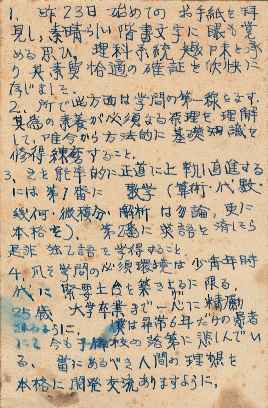 1. 昨23日 始めての お手紙を拝
見し、素晴らしい楷書文字に眼も覚
める思ひ、理科系統趣味と承
り 其素質恰適の確証を快快に
存じました。
2. 所で此方面は学問の第一線をなす。
其為の素養が必須なる条理を理解
して、唯今から方法的に基礎知識を
修得錬奮すること。
3. 之を能率的に正道に上り 直進する
には 第1番に 数学 (算術・代数・
幾何・微積分・解析は勿論、更に
本格を)、第2番に英語を 済したら
是非 独乙語を学得すること。
4. 凡そ学問の必須環境は少青年時
代に 緊要土台を築き上るに限る。
25歳 大学卒業まで一心に精励
さるように、僕は尋常6年だけの患者
にて 今も 学校の落第に悲しんでい
る、当にあるべき人間の理想を
本格に開発交流ありますように。